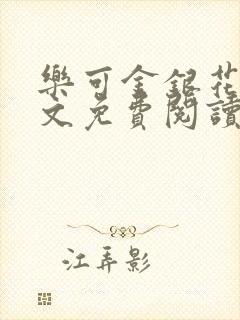 樂可金銀花
文免費閱讀
江弄影